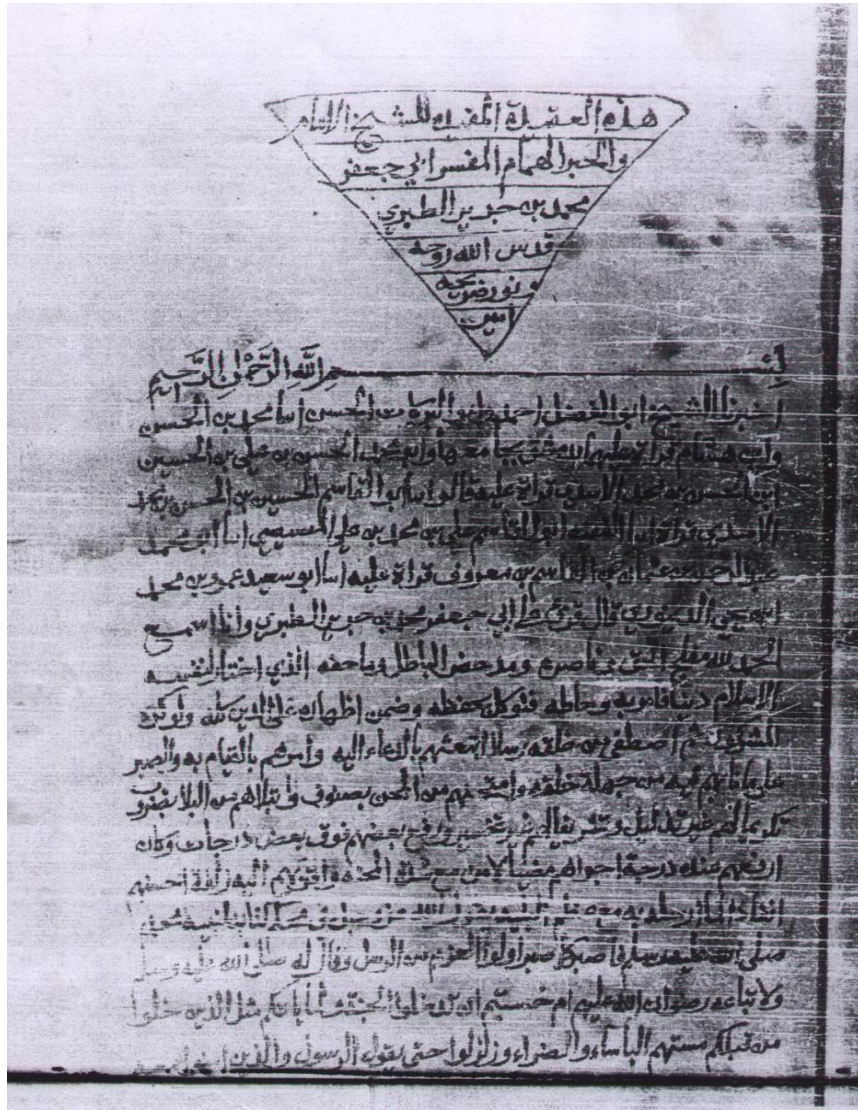 هذه العقيدة المفيدة للشيخ الامام
والحبر الهمام المفسر ابي جعفر
محمد بن جرير الطبري
قدس الله روحه
ونور ضريحه
امين
بسم الله الرحمن الرحيم
اخبرنا الشيخ ابو الفضل احمد وابو البركات الحسن محمد بن الحسن
قراة عليهما بدمشق وابو محمد الحسن بن علي بن الحسين
ابن الحسن بن محمد الاسدي قراة عليه قالوا ابو القاسم الحسين بن الحسن بن محمد
الاسدي قراة الفقيه ابو القاسم علي بن محمد بن علي المصيصي ابو محمد
عبد الرحمن بن عثمان بن القاسم بن معروف قراة عليه ابو سعيد عمرو بن محمد
ابن يحيى الدينوري قال قرئ على ابي جعفر محمد بن جرير الطبري وانا اسمع
الحمد لله مفلج الحق وناصره ومدحض الباطل وماحقه الذي اختار لنفسه
الاسلام دينا فامر به وحاطه فتوكل بحفظه وضمن اظهاره على الدين كله ولو كره
المشركون ثم اصطفى من خلقه رسلا ابتعثهم بالدعاء اليه وامرهم بالقيام به والصبر
على ما نابهم فيه من جهلة خلقه وامتحنهم من المحن بصنوف وابتلاهم من البلا بضروب
تكريما لهم غير تذليل وتشريفا لهم غير تخسير ورفع بعضهم فوق بعض درجات وكان
ارفعهم عنده درجة اجراهم مضيا لامره مع شدة المحنة واقربهم اليه زلفة احسنهم
انفاذا لما ارسله به مع يقول الله عز وجل في محكم كتابه لنبيه محمد
صلى الله عليه وسلم فاصبر كما صبر اولوا العزم من الرسل وقال له صلى الله عليه وسلم
ولاتباعه رضوان الله عليهم ام حسبتم ان تدخلوا الجنة ولما ياتكم مثل الذين خلوا
من قبلكم مستهم الباساء والضراء وزلزلوا حتى يقول الرسول والذين امنوا معه